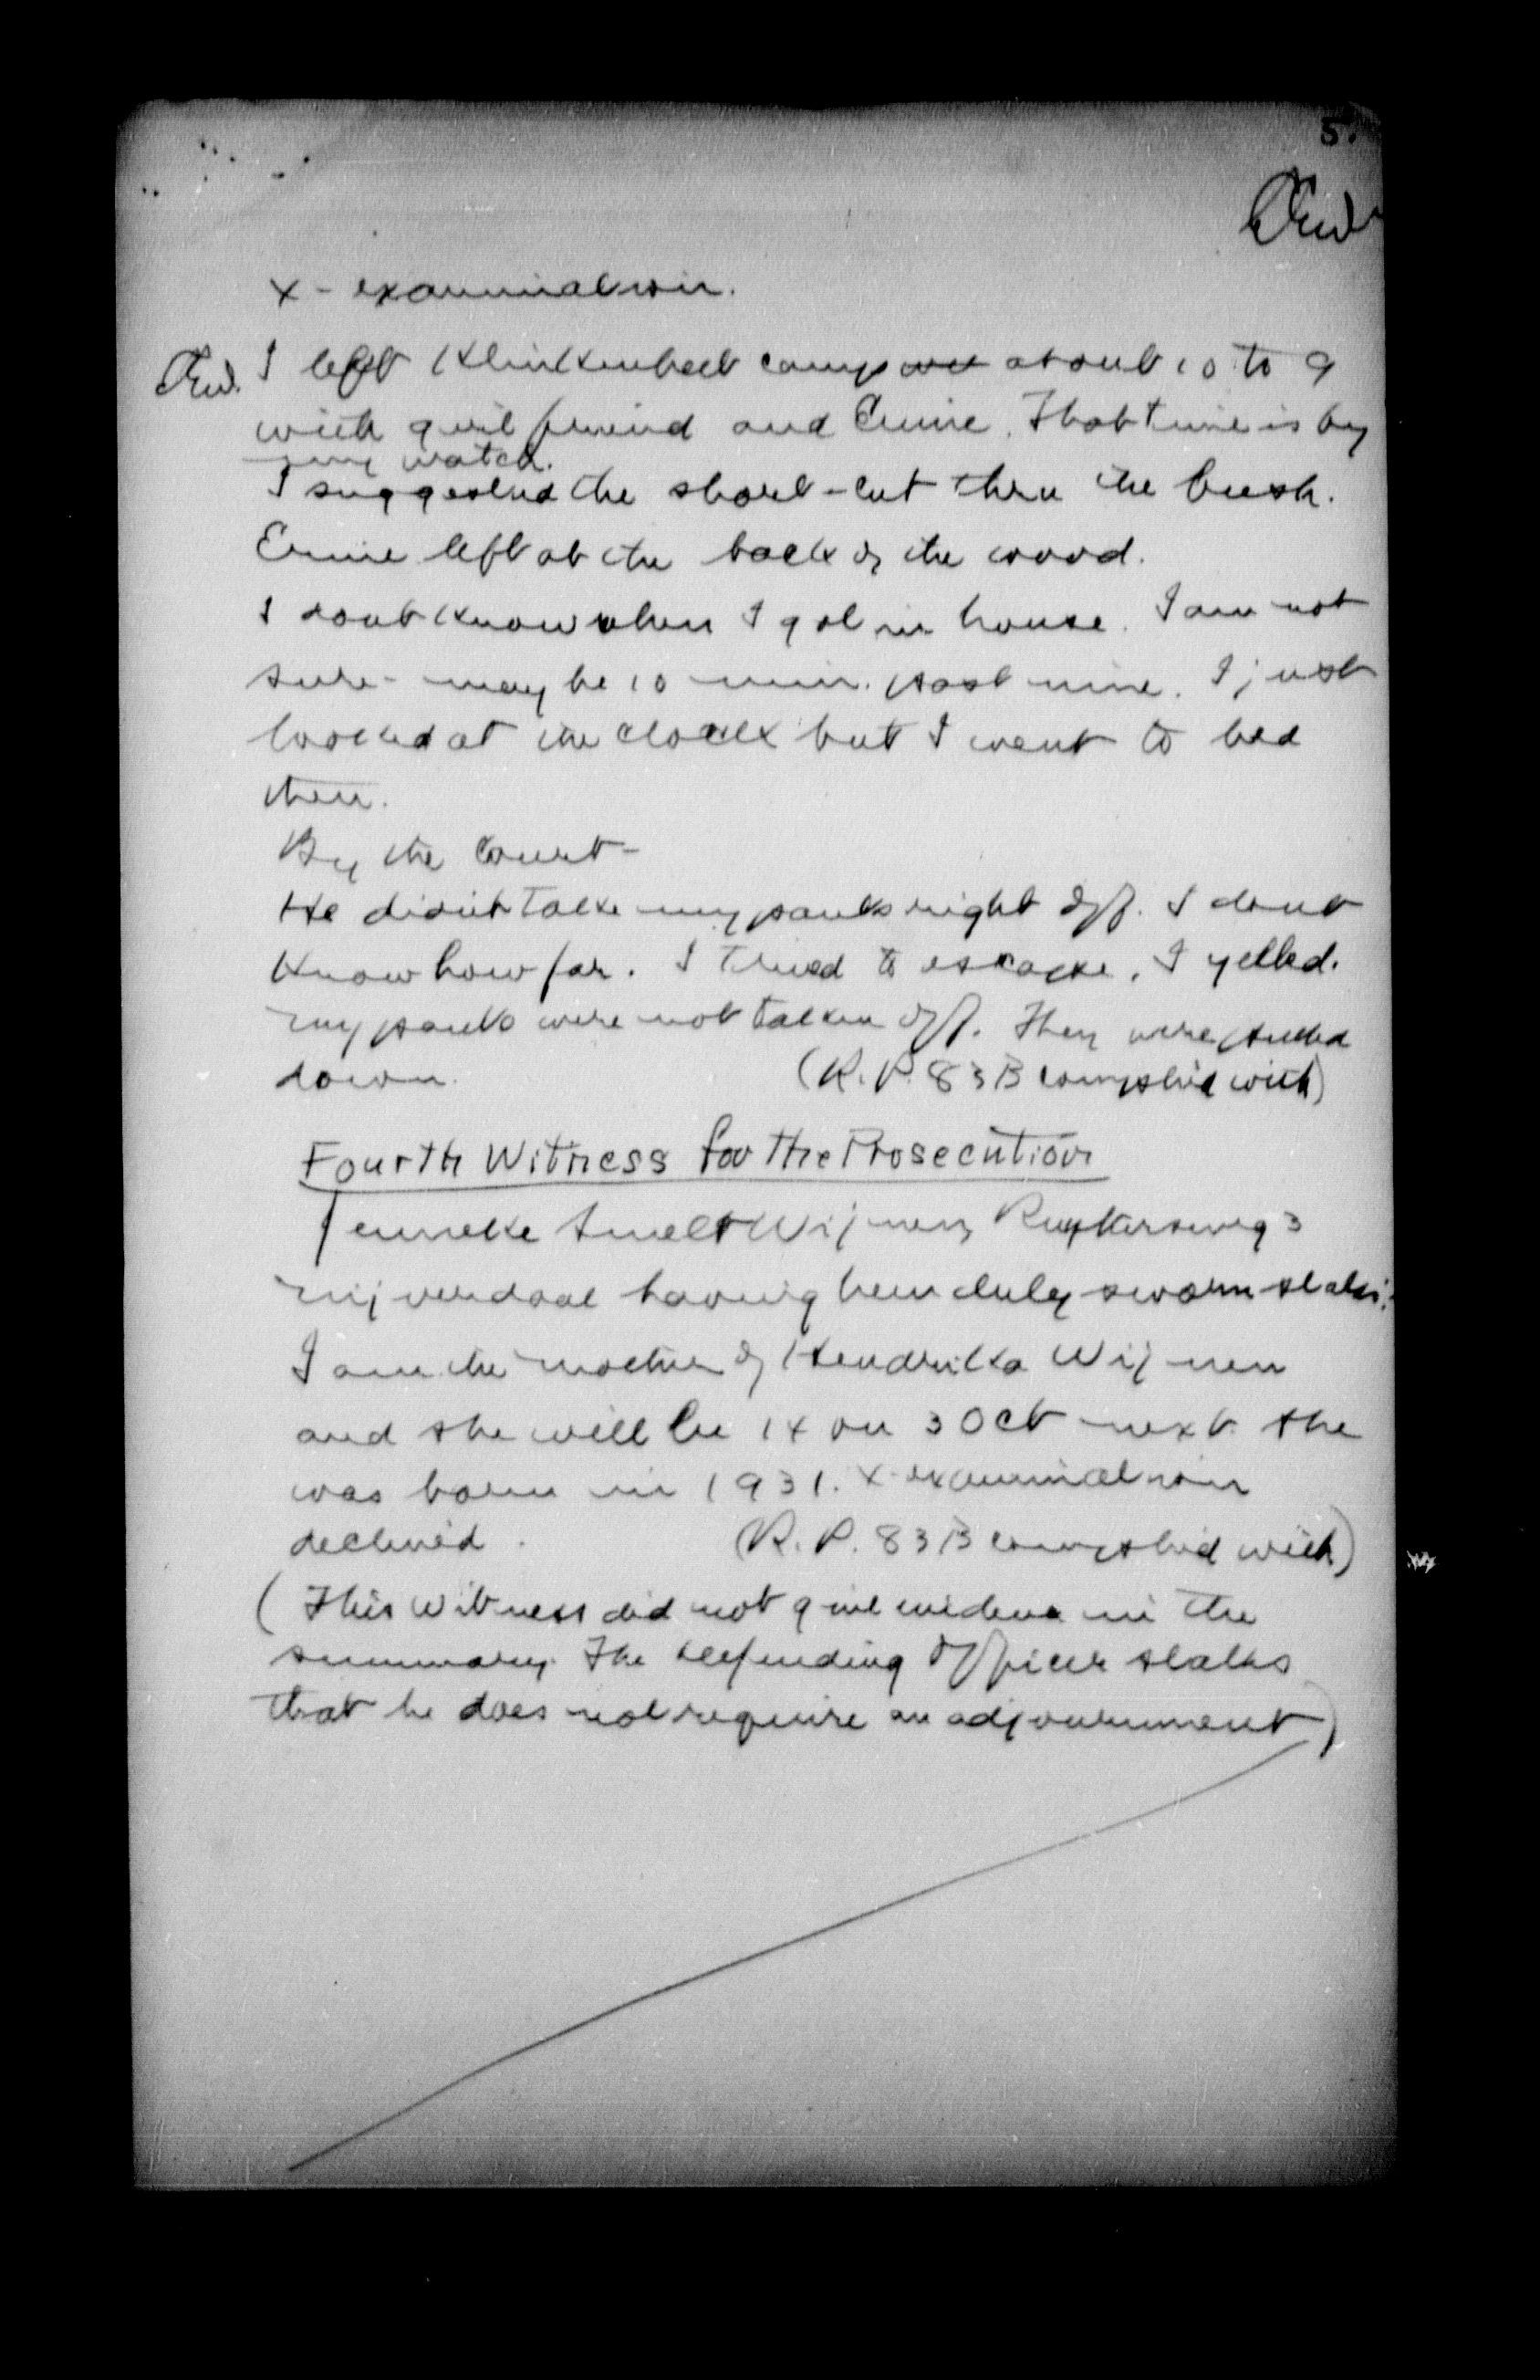 5.
x - examination.
I left Klinkenbelt camp about 10 to 9
with girl friend and Ernie. That time is by
my watch.
I suggested the short-cut thru the bush.
Ernie left at the back of the wood.
I dont know when I got in house. I am not
sure - may be 10 min. past nine. I just
looked at the clock but I went to bed
then.
By the Court -
He didn't take my pants right off. I dont
know how far. I tried to escape. I yelled.
my pants were not taken off. They were pulled
down. (R.P. 83B complied with)
Fourth Witness for the Prosecution
Jenneke Smelt Wijnen, 3
Nijverdaal having been duly sworn states:
I am the mother of Hendrika Wijnen
and she will be 14 on 3 Oct next. She
was born in 1931. x-examination
declined. (R.P. 83B complied with)
(This witness did not give evidence in the
summary. The defending officer states
that he does not require an adjournment)